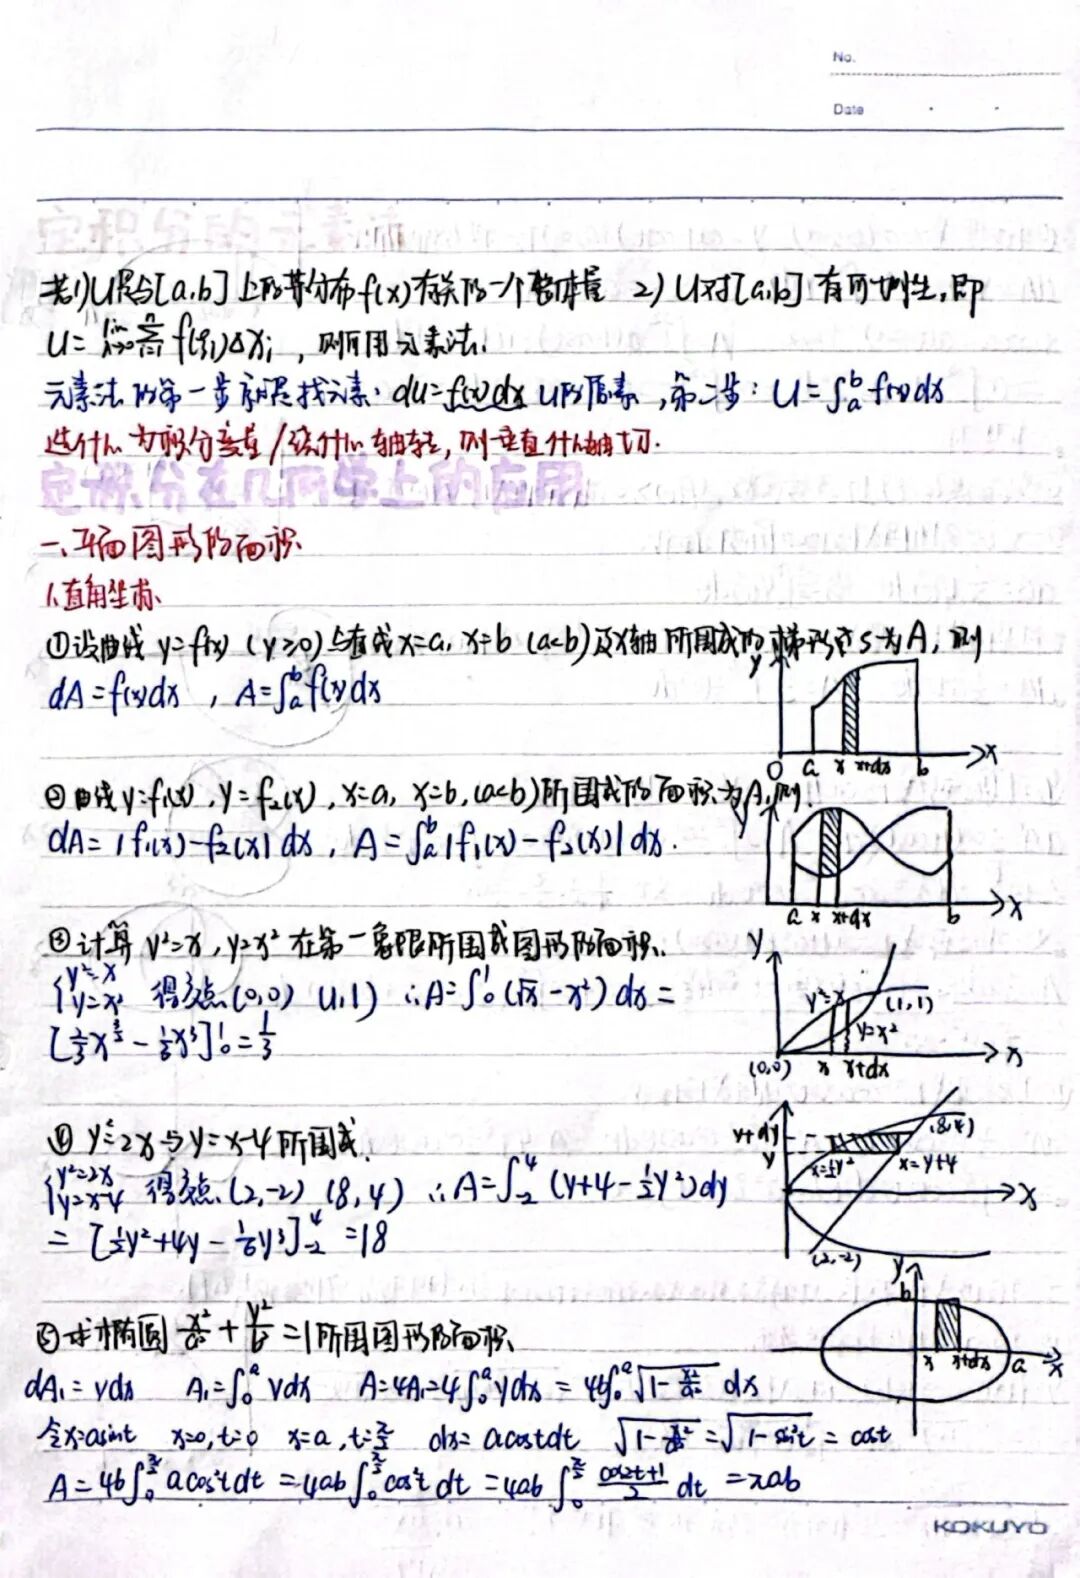 No.
Date
定积分的元素法
若1)U是与[a,b]上的某分布f(x)有关的一个整体量 2) U对[a,b]有可加性,即
U=lim λ→0 Σ i=1 n f(ξi)Δxi , 则可用元素法.
元素法的第一步就是找元素: dU=f(x)dx U的元素, 第二步: U=∫_a^b f(x)dx
选什么为积分变量/绕什么轴转, 则垂直什么轴切.
定积分在几何学上的应用
一、平面图形的面积
1.直角坐标
①设曲线 y=f(x) (y≥0)与直线x=a, x=b (a<b)及x轴所围成的梯形 S为A, 则
dA=f(x)dx , A=∫_a^b f(x)dx
y
O a x x+dx b x
②曲线y=f₁(x), y=f₂(x), x=a, x=b, (a<b)所围成的面积为A,则
dA=|f₁(x)-f₂(x)|dx, A=∫_a^b |f₁(x)-f₂(x)|dx.
y
a x x+dx b x
③计算 y²=x, y=x² 在第一象限所围成图形的面积.
{y²=x
y=x² 得交点(0,0) (1,1) ∴A=∫_0^1 (√x-x²)dx=
[⅔x^{3/2}-⅓x³]_0^1=⅓
y
y²=x (1,1)
y=x²
(0,0) x x+dx x
④ y²=2x与y=x-4所围成.
{y²=2x
y=x-4 得交点(2,-2) (8,4) ∴A=∫_{-2}^4 (y+4-½y²)dy
=[½y²+4y-⅙y³]_{-2}^4=18
y+dy (8,4)
y x=½y² x=y+4
x
(2,-2)
⑤求椭圆 x²/a²+y²/b²=1所围图形的面积.
dA₁=ydx A₁=∫_0^a ydx A=4A₁=4∫_0^a ydx=4b∫_0^a √(1-x²/a²) dx
令x=asint x=0,t=0 x=a,t=π/2 dx=acostdt √(1-x²/a²)=√(1-sin²t)=cost
A=4b∫_0^{π/2} acos²t dt=4ab∫_0^{π/2} cos²t dt=4ab∫_0^{π/2} (cos2t+1)/2 dt=πab
y
b
x x+dx a x
KOKUYO